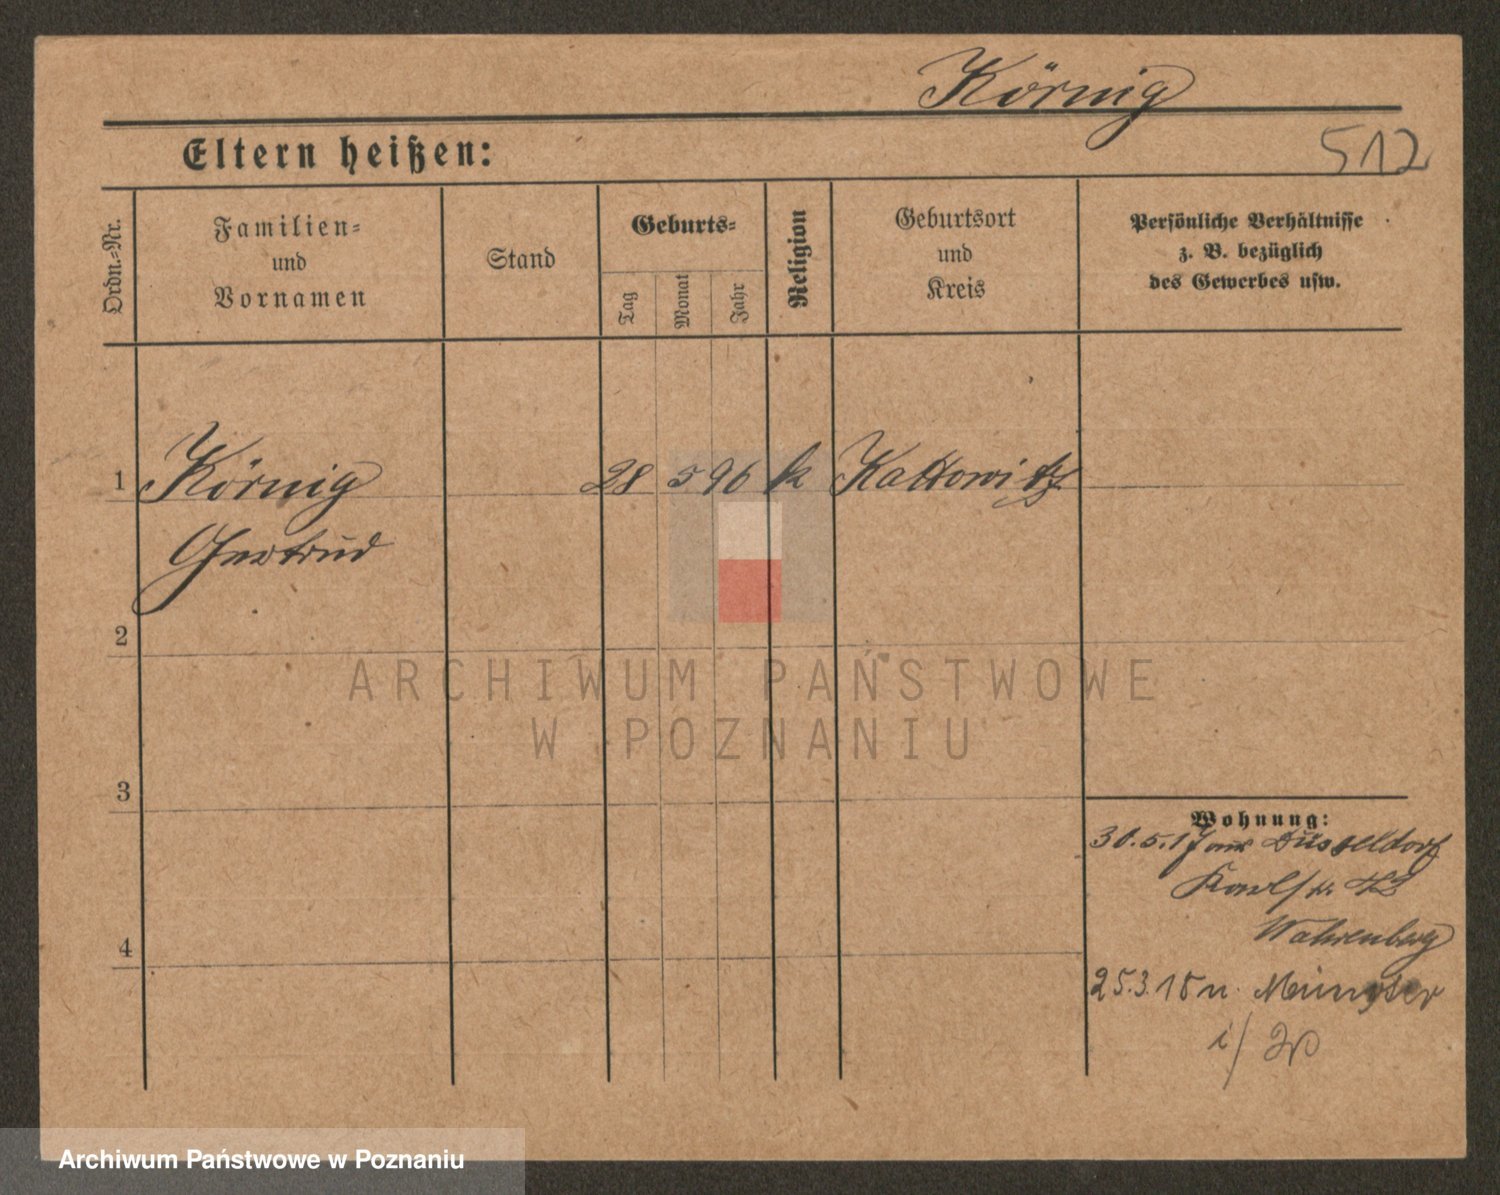 Körnig
512
Eltern heißen:
Ordn.-Nr.
Familien-
und
Vornamen
Stand
Geburts-
Tag
Monat
Jahr
Religion
Geburtsort
und
Kreis
Persönliche Verhältnisse
z. B. bezüglich
des Gewerbes usw.
1 Körnig 28 5 96 k Kattowitz
Gertrud
2
ARCHIWUM PAŃSTWOWE
W POZNANIU
3
Wohnung:
30.5.17 aus Düsseldorf
Karlstr.
Wahrenberg
4
25.3.18 n. Münster
i/W
Archiwum Państwowe w Poznaniu